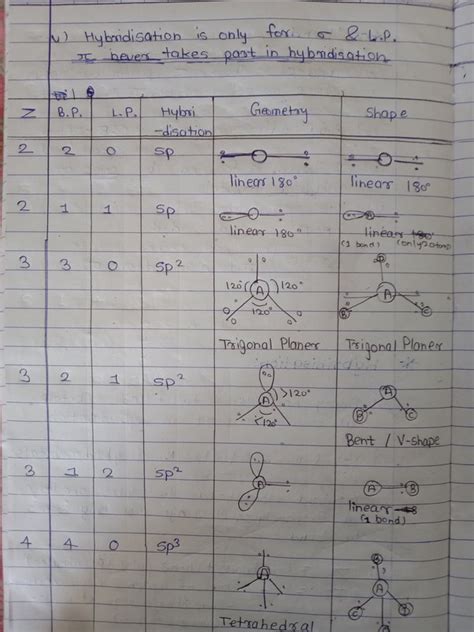 v) Hybridisation is only for σ & L.P.
π never takes part in hybridisation
Z B.P. L.P. Hybri-disation Geometry Shape
2 2 0 sp linear 180° linear 180°
2 1 1 sp linear 180° linear 180° (1 bond) (only 2 atoms)
3 3 0 sp² 120° 120° A 120° A B C
Trigonal Planer Trigonal Planer
3 2 1 sp² A >120° <120° A B C
Bent / V-shape
3 1 2 sp² A A B
linear (1 bond)
4 4 0 sp³ A B A C
Tetrahedral